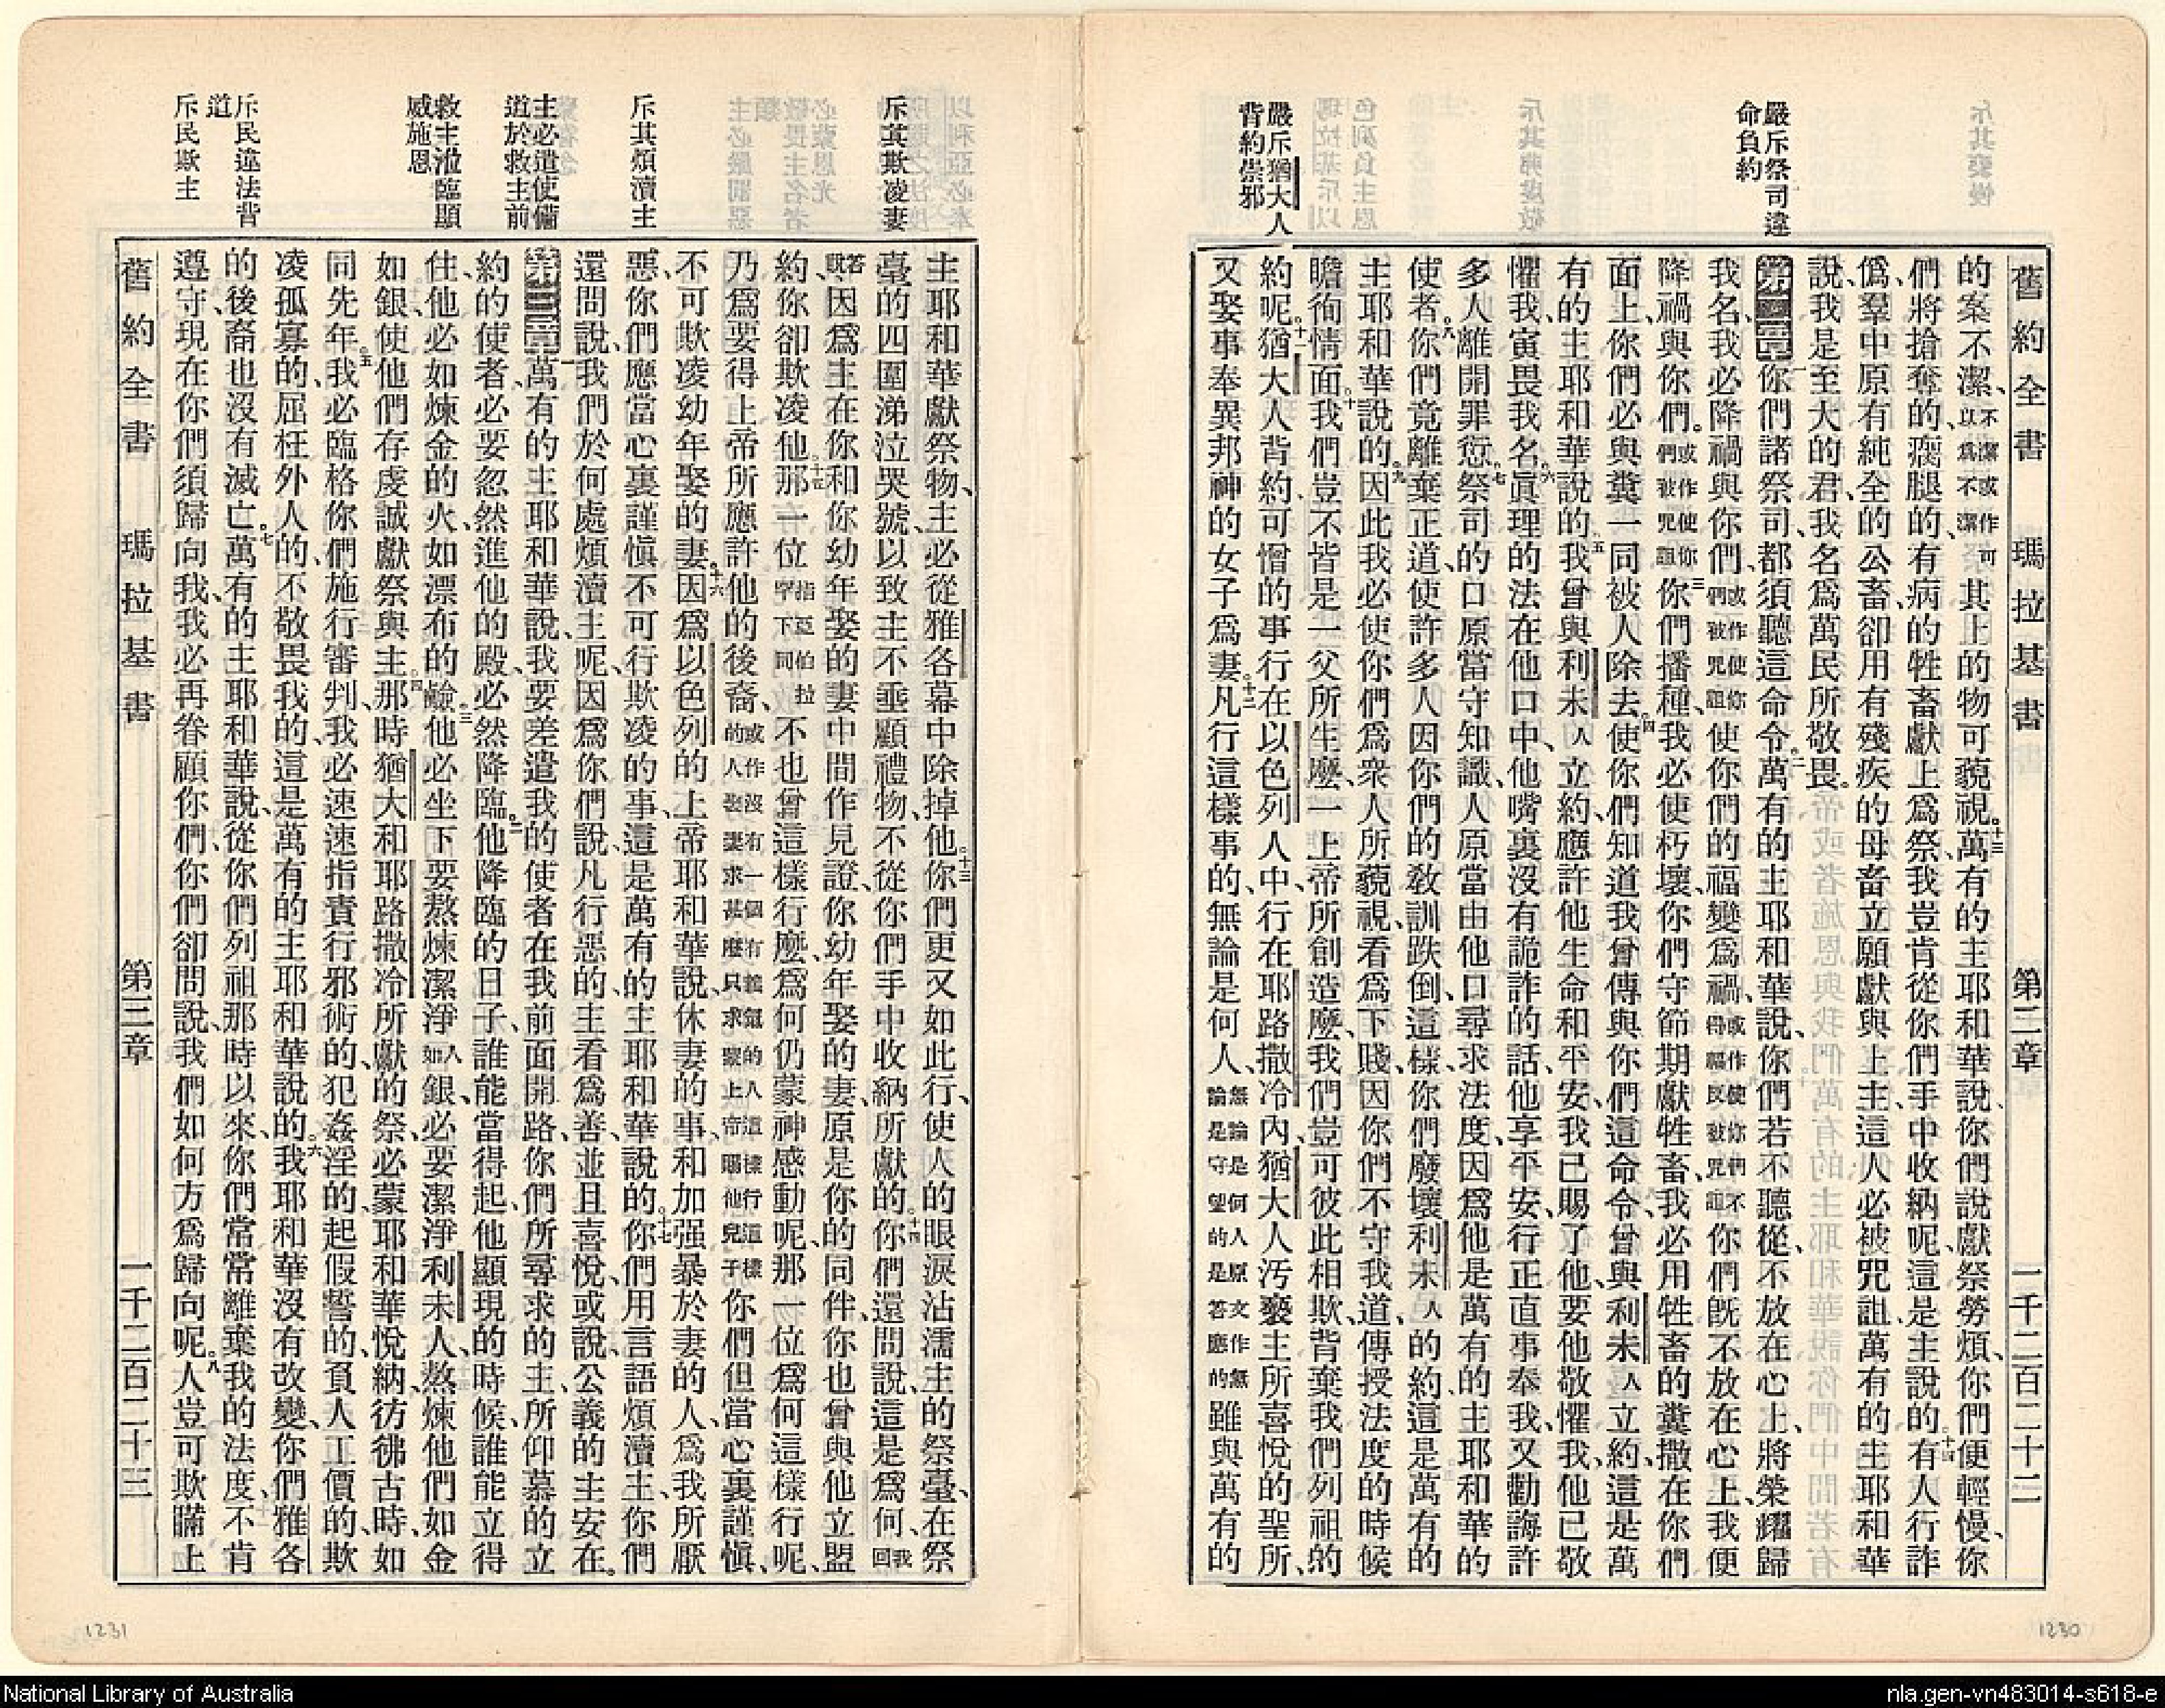 舊約全書 瑪拉基書 第二章 一千二百二十二
嚴斥祭司違
命負約
嚴斥猶大人
背約崇邪
的案不潔、不潔或作可以爲不潔其上的物可藐視。十三萬有的主耶和華說、你們說獻祭勞煩、你們便輕慢、你
們將搶奪的、瘸腿的、有病的牲畜獻上爲祭、我豈肯從你們手中收納呢、這是主說的。十四有人行詐
僞、羣中原有純全的公畜、卻用有殘疾的母畜立願獻與上主、這人必被咒詛、萬有的主耶和華
說、我是至大的君、我名爲萬民所敬畏。
第二章一你們諸祭司、都須聽這命令。二萬有的主耶和華說、你們若不聽從、不放在心上、將榮耀歸
我名、我必降禍與你們、或作使你們被咒詛使你們的福變爲禍、或作使你們不得福反被咒詛你們旣不放在心上、我便
降禍與你們。或作使你們被咒詛三你們播種、我必使朽壞、你們守節期獻牲畜、我必用牲畜的糞撒在你們
面上、你們必與糞一同被人除去。四使你們知道我曾傳與你們這命令、曾與利未人立約、這是萬
有的主耶和華說的。五我曾與利未人立約、應許他生命和平安、我已賜了他、要他敬懼我、他已敬
懼我、寅畏我名。六眞理的法在他口中、他嘴裏沒有詭詐的話、他享平安、行正直事奉我、又勸誨許
多人離開罪愆。七祭司的口原當守知識、人原當由他口尋求法度、因爲他是萬有的主耶和華的
使者。八你們竟離棄正道、使許多人因你們的敎訓跌倒、這樣、你們廢壞利未人的約、這是萬有的
主耶和華說的。九因此我必使你們爲衆人所藐視、看爲下賤、因你們不守我道、傳授法度的時候
瞻徇情面。十我們豈不皆是一父所生麽、一上帝所創造麽、我們豈可彼此相欺、背棄我們列祖的
約呢。十一猶大人背約、可憎的事行在以色列人中、行在耶路撒冷內、猶大人汚褻主所喜悅的聖所、
又娶事奉異邦神的女子爲妻。十二凡行這樣事的、無論是何人、無論是何人原文作無論是守望的是答應的雖與萬有的
1230
斥其欺凌妻
斥其煩瀆主
主必遣使備
道於救主前
救主涖臨顯
威施恩
斥民違法背
道
斥民欺主
主耶和華獻祭物、主必從雅各幕中除掉他。十三你們更又如此行、使人的眼淚沾濡主的祭臺、在祭
臺的四圍涕泣哭號、以致主不垂顧禮物、不從你們手中收納所獻的。十四你們還問說、這是爲何、我回
答說因爲主在你和你幼年娶的妻中間作見證、你幼年娶的妻、原是你的同伴、你也曾與他立盟
約、你卻欺凌他。十五那一位指亞伯拉罕下同不也曾這樣行麽、爲何仍蒙神感動呢、那一位爲何這樣行呢、
乃爲要得上帝所應許他的後裔、或作沒有一個有義氣的人這樣行這樣的人娶妻求甚麽只求蒙上帝賜他兒子你們但當心裏謹愼、
不可欺凌幼年娶的妻。十六因爲以色列的上帝耶和華說、休妻的事、和加强暴於妻的人、爲我所厭
惡、你們應當心裏謹愼、不可行欺凌的事、這是萬有的主耶和華說的。十七你們用言語煩瀆主、你們
還問說、我們於何處煩瀆主呢、因爲你們說、凡行惡的、主看爲善、並且喜悅、或說、公義的主安在。
第三章一萬有的主耶和華說、我要差遣我的使者在我前面開路、你們所尋求的主、所仰慕的立
約的使者、必要忽然進他的殿、必然降臨。二他降臨的日子、誰能當得起、他顯現的時候、誰能立得
住、他必如煉金的火、如漂布的鹼。三他必坐下、要熬煉潔淨人如銀、必要潔淨利未人、熬煉他們如金
如銀、使他們存虔誠獻祭與主。四那時猶大和耶路撒冷所獻的祭、必蒙耶和華悅納、彷彿古時、如
同先年。五我必臨格你們施行審判、我必速速指責行邪術的、犯姦淫的、起假誓的、負人工價的、欺
凌孤寡的、屈枉外人的、不敬畏我的、這是萬有的主耶和華說的。六我耶和華沒有改變、你們雅各
的後裔也沒有滅亡。七萬有的主耶和華說、從你們列祖那時以來、你們常常離棄我的法度、不肯
遵守、現在你們須歸向我、我必再眷顧你們、你們卻問說、我們如何方爲歸向呢。八人豈可欺瞞上
舊約全書 瑪拉基書 第三章 一千二百二十三
1231
National Library of Australia
nla.gen-vn483014-s618-e